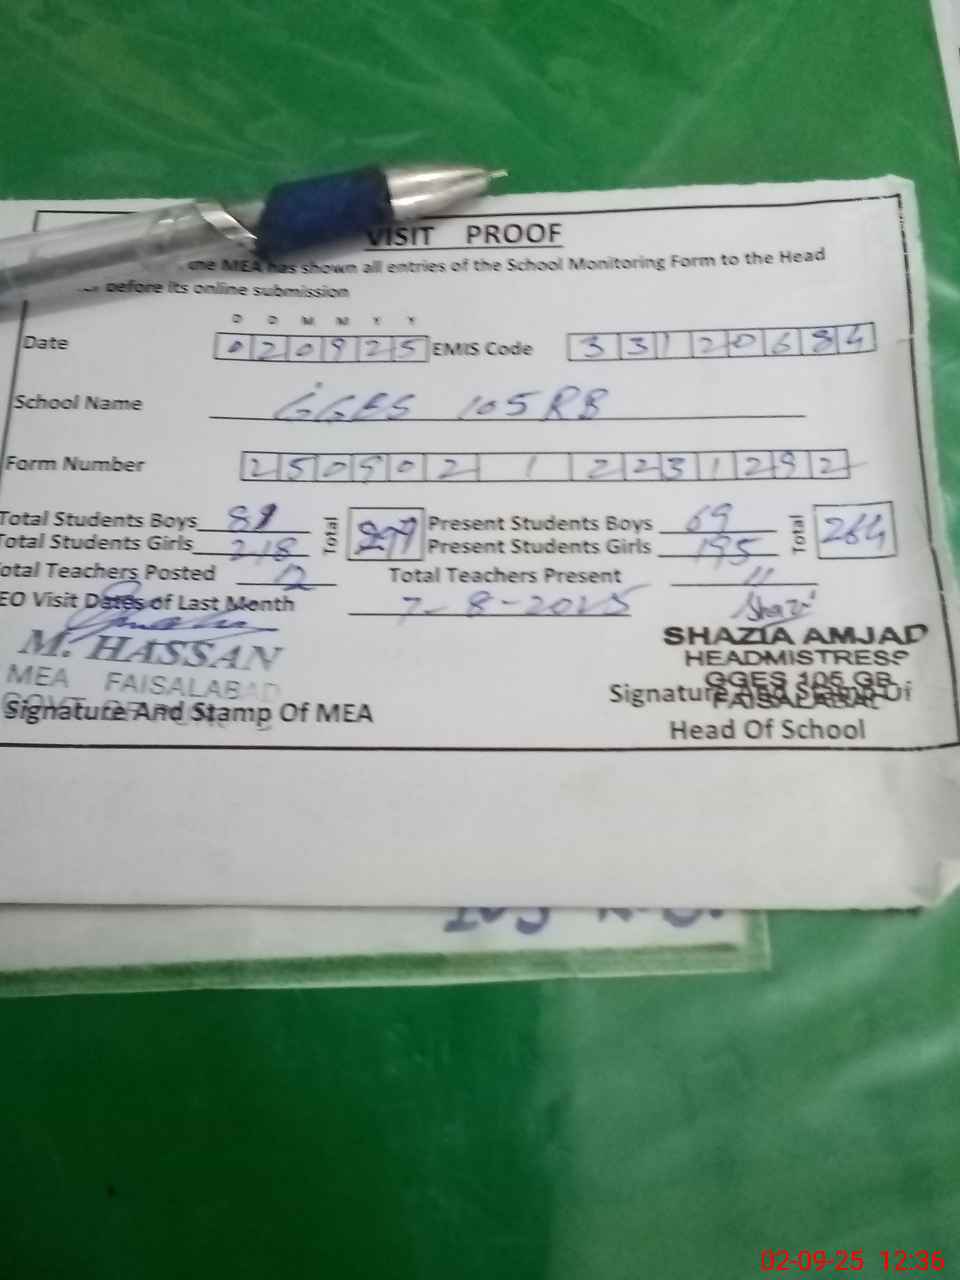 VISIT PROOF
the MEA has shown all entries of the School Monitoring Form to the Head
before its online submission
D D M M Y Y
Date 020925 EMIS Code 33120684
School Name GGES 105 RB
Form Number 250902 1 2231292
Total Students Boys Total Present Students Boys 69 Total
Total Students Girls 218 Present Students Girls 195 264
Total Teachers Posted 12 Total Teachers Present 11
EO Visit Dates of Last Month 7-8-2025
M. HASSAN
MEA FAISALABAD
Signature And Stamp Of MEA
SHAZIA AMJAD
HEADMISTRESS
GGES 105 GB
FAISALABAD
Signature And Stamp Of
Head Of School
02-09-25 12:36